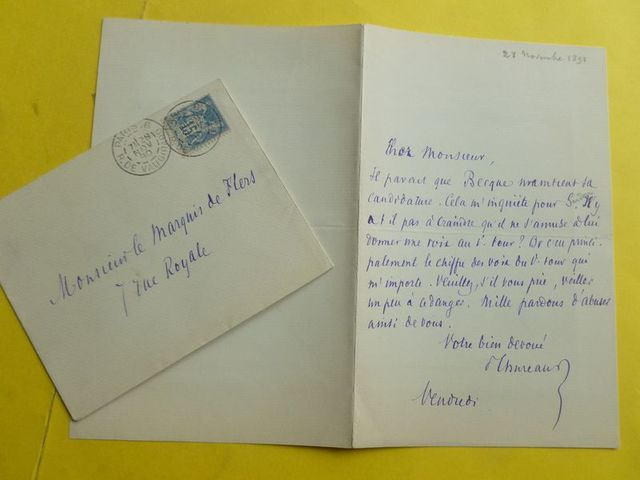 Monsieur le Marquis de Flers
7 rue Royale
PARIS
R. DE VAUGIRARD
28 Novembre
Cher Monsieur,
Il parait que Becque maintient sa
candidature. Cela m'inquiète pour S. N'y
a t il pas à craindre qu'il ne s'amuse à lui
donner une voix au 1er tour? Or c'est princi-
palement le chiffre des voix du 1er tour qui
m'importe. Veuillez, s'il vous plaît, veiller
un peu à ce danger. Mille pardons d'abuser
ainsi de vous.
Votre bien dévoué
Vendredi